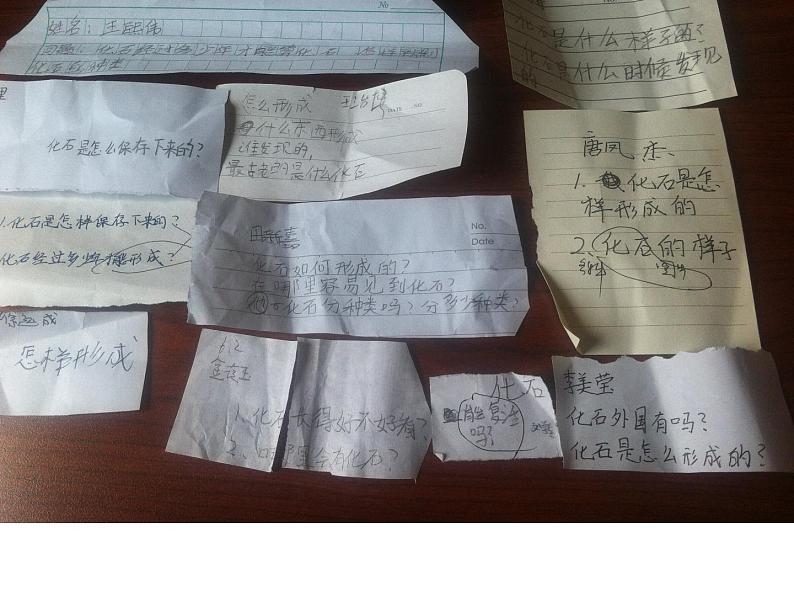 No
姓名：王
问题：化石经过多少年才能
化石的种类
化石是什么样子的？
化石是什么时候发现
的
化石是怎么保存下来的？
怎么形成
DATE NO
什么东西形成
谁发现的，
最古老的是什么化石
1.化石是怎样保存下来的？
化石经过多少年才能形成？
田新喜
No.
Date
化石如何形成的？
在哪里容易见到化石？
化石分种类吗？分多少种类？
唐凤杰、
1. 化石是怎
样形成的
2、化石的样子
怎样形成
6.2
1、化石长得好不好看？
2、哪里会有化石？
化石
能复活
吗？
李美莹
化石外国有吗？
化石是怎么形成的？